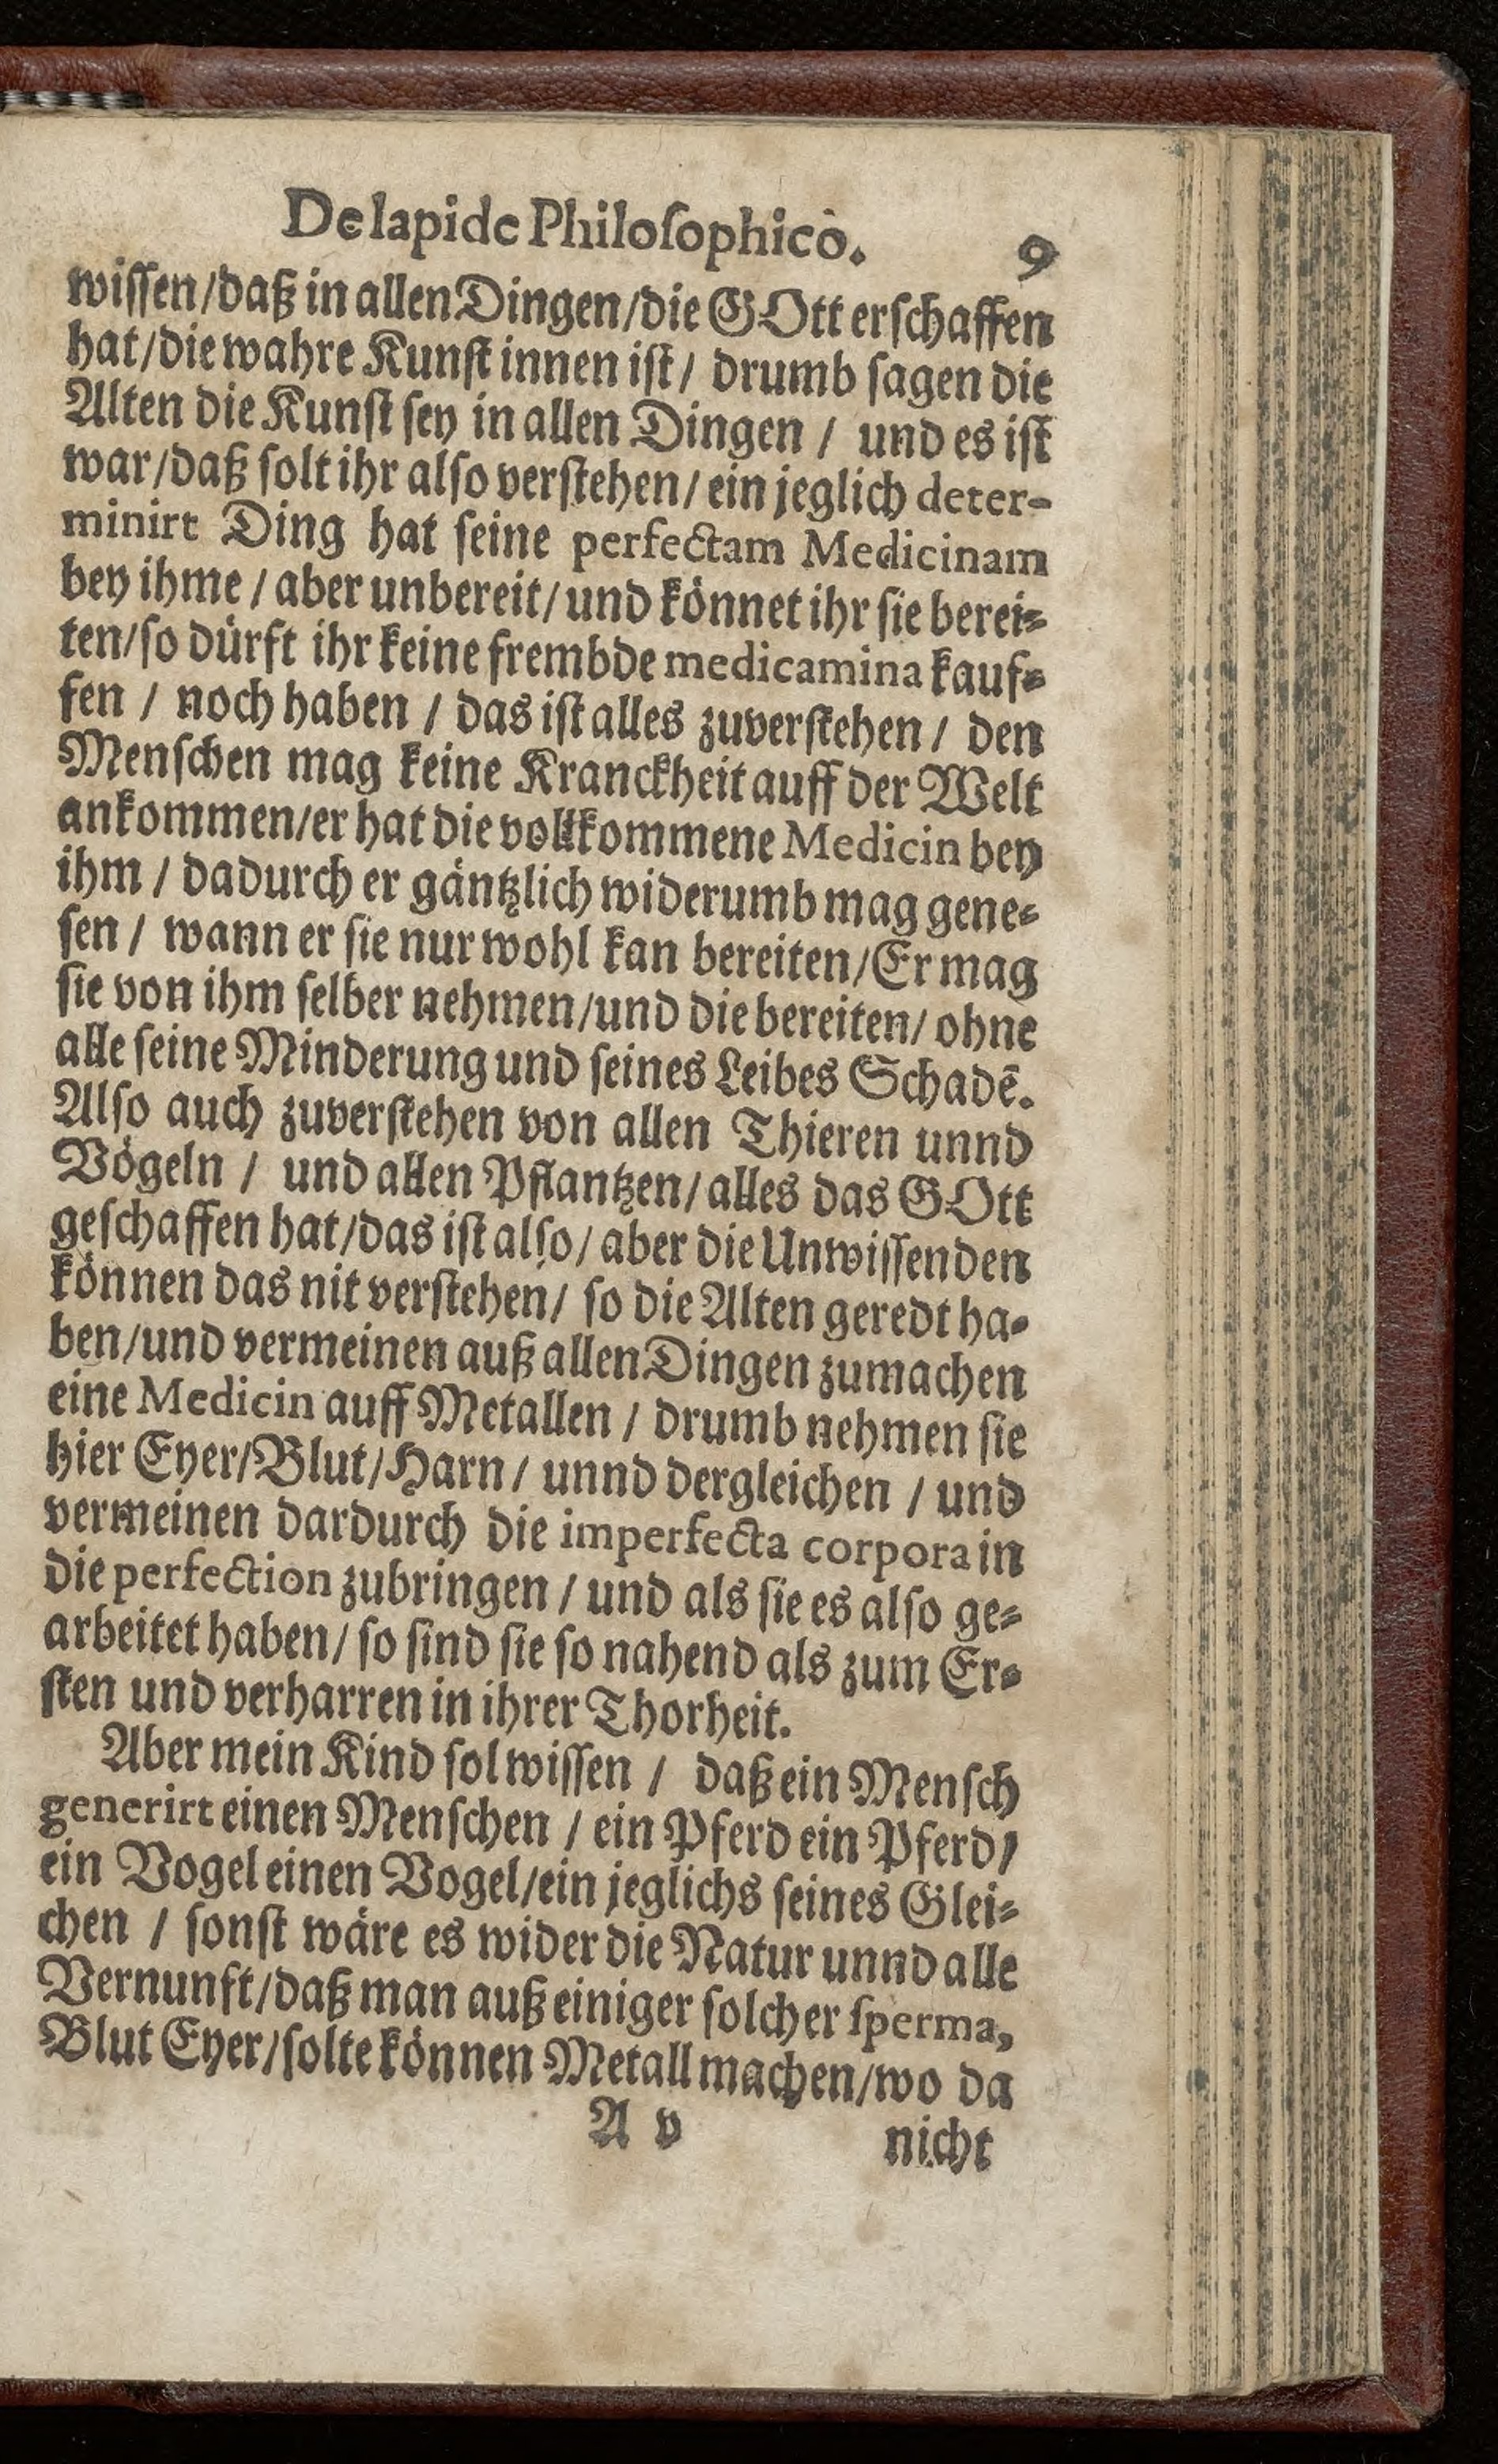 De lapide Philoſophicò. 9
wiſſen/daß in allen Dingen/die GOtt erſchaffen
hat/die wahre Kunſt innen iſt/ drumb ſagen die
Alten die Kunſt ſey in allen Dingen / und es iſt
war/daß ſolt ihr alſo verſtehen/ ein jeglich deter-
minirt Ding hat ſeine perfectam Medicinam
bey ihme / aber unbereit/ und könnet ihr ſie berei-
ten/ſo dürft ihr keine frembde medicamina kauf-
fen / noch haben / das iſt alles zuverſtehen / den
Menſchen mag keine Kranckheit auff der Welt
ankommen/er hat die vollkommene Medicin bey
ihm / dadurch er gäntzlich widerumb mag gene-
ſen / wann er ſie nur wohl kan bereiten/Er mag
ſie von ihm ſelber nehmen/und die bereiten/ ohne
alle ſeine Minderung und ſeines Leibes Schadē.
Alſo auch zuverſtehen von allen Thieren unnd
Vögeln / und allen Pflantzen/ alles das GOtt
geſchaffen hat/das iſt alſo/ aber die Unwiſſenden
können das nit verſtehen/ ſo die Alten geredt ha-
ben/und vermeinen auß allen Dingen zumachen
eine Medicin auff Metallen / drumb nehmen ſie
hier Eyer/Blut/Harn/ unnd dergleichen / und
vermeinen dardurch die imperfecta corpora in
die perfection zubringen / und als ſie es alſo ge-
arbeitet haben/ ſo ſind ſie ſo nahend als zum Er-
ſten und verharren in ihrer Thorheit.
Aber mein Kind ſol wiſſen / daß ein Menſch
generirt einen Menſchen / ein Pferd ein Pferd/
ein Vogel einen Vogel/ein jeglichs ſeines Glei-
chen / ſonſt wäre es wider die Natur unnd alle
Vernunft/daß man auß einiger ſolcher ſperma,
Blut Eyer/ſolte können Metall machen/wo da
A v nicht